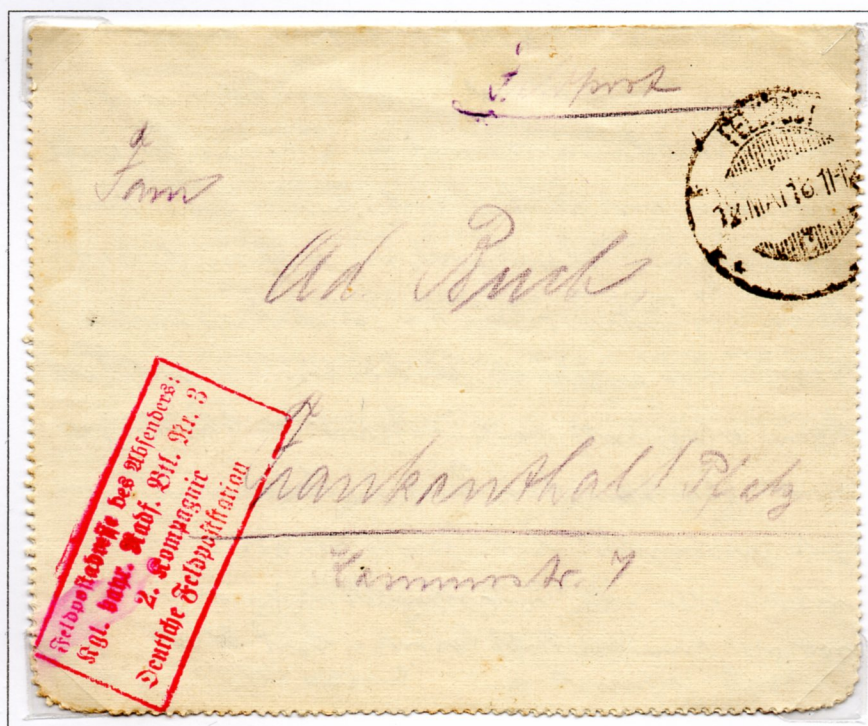 Feldpost
FELDPOST
12.MAI 16.11-12
Fam
Ad. Buch
Frankenthal / Pfalz
7
Feldpostadresse des Absenders:
Kgl. bayr. Radf. Btl. Nr. 3
2. Kompagnie
Deutsche Feldpoststation